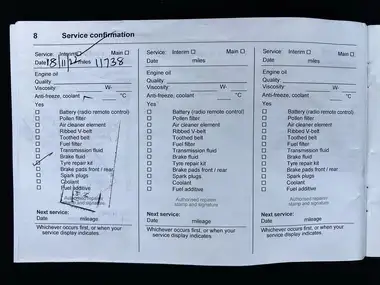 8 Service confirmation
Service: Interim Main
Date 18/11/2 miles 11738
Engine oil
Quality
Viscosity: W-
Anti-freeze, coolant °C
Yes
Battery (radio remote control)
Pollen filter
Air cleaner element
Ribbed V-belt
Toothed belt
Fuel filter
Transmission fluid
Brake fluid
Tyre repair kit
Brake pads front / rear
Spark plugs
Coolant
Fuel additive
Authorised repairer
stamp and signature
Next service:
Date mileage
Whichever occurs first, or when your
service display indicates.
Service: Interim Main
Date miles
Engine oil
Quality
Viscosity: W-
Anti-freeze, coolant °C
Yes
Battery (radio remote control)
Pollen filter
Air cleaner element
Ribbed V-belt
Toothed belt
Fuel filter
Transmission fluid
Brake fluid
Tyre repair kit
Brake pads front / rear
Spark plugs
Coolant
Fuel additive
Authorised repairer
stamp and signature
Next service:
Date mileage
Whichever occurs first, or when your
service display indicates.
Service: Interim Main
Date miles
Engine oil
Quality
Viscosity: W-
Anti-freeze, coolant °C
Yes
Battery (radio remote control)
Pollen filter
Air cleaner element
Ribbed V-belt
Toothed belt
Fuel filter
Transmission fluid
Brake fluid
Tyre repair kit
Brake pads front / rear
Spark plugs
Coolant
Fuel additive
Authorised repairer
stamp and signature
Next service:
Date mileage
Whichever occurs first, or when your
service display indicates.